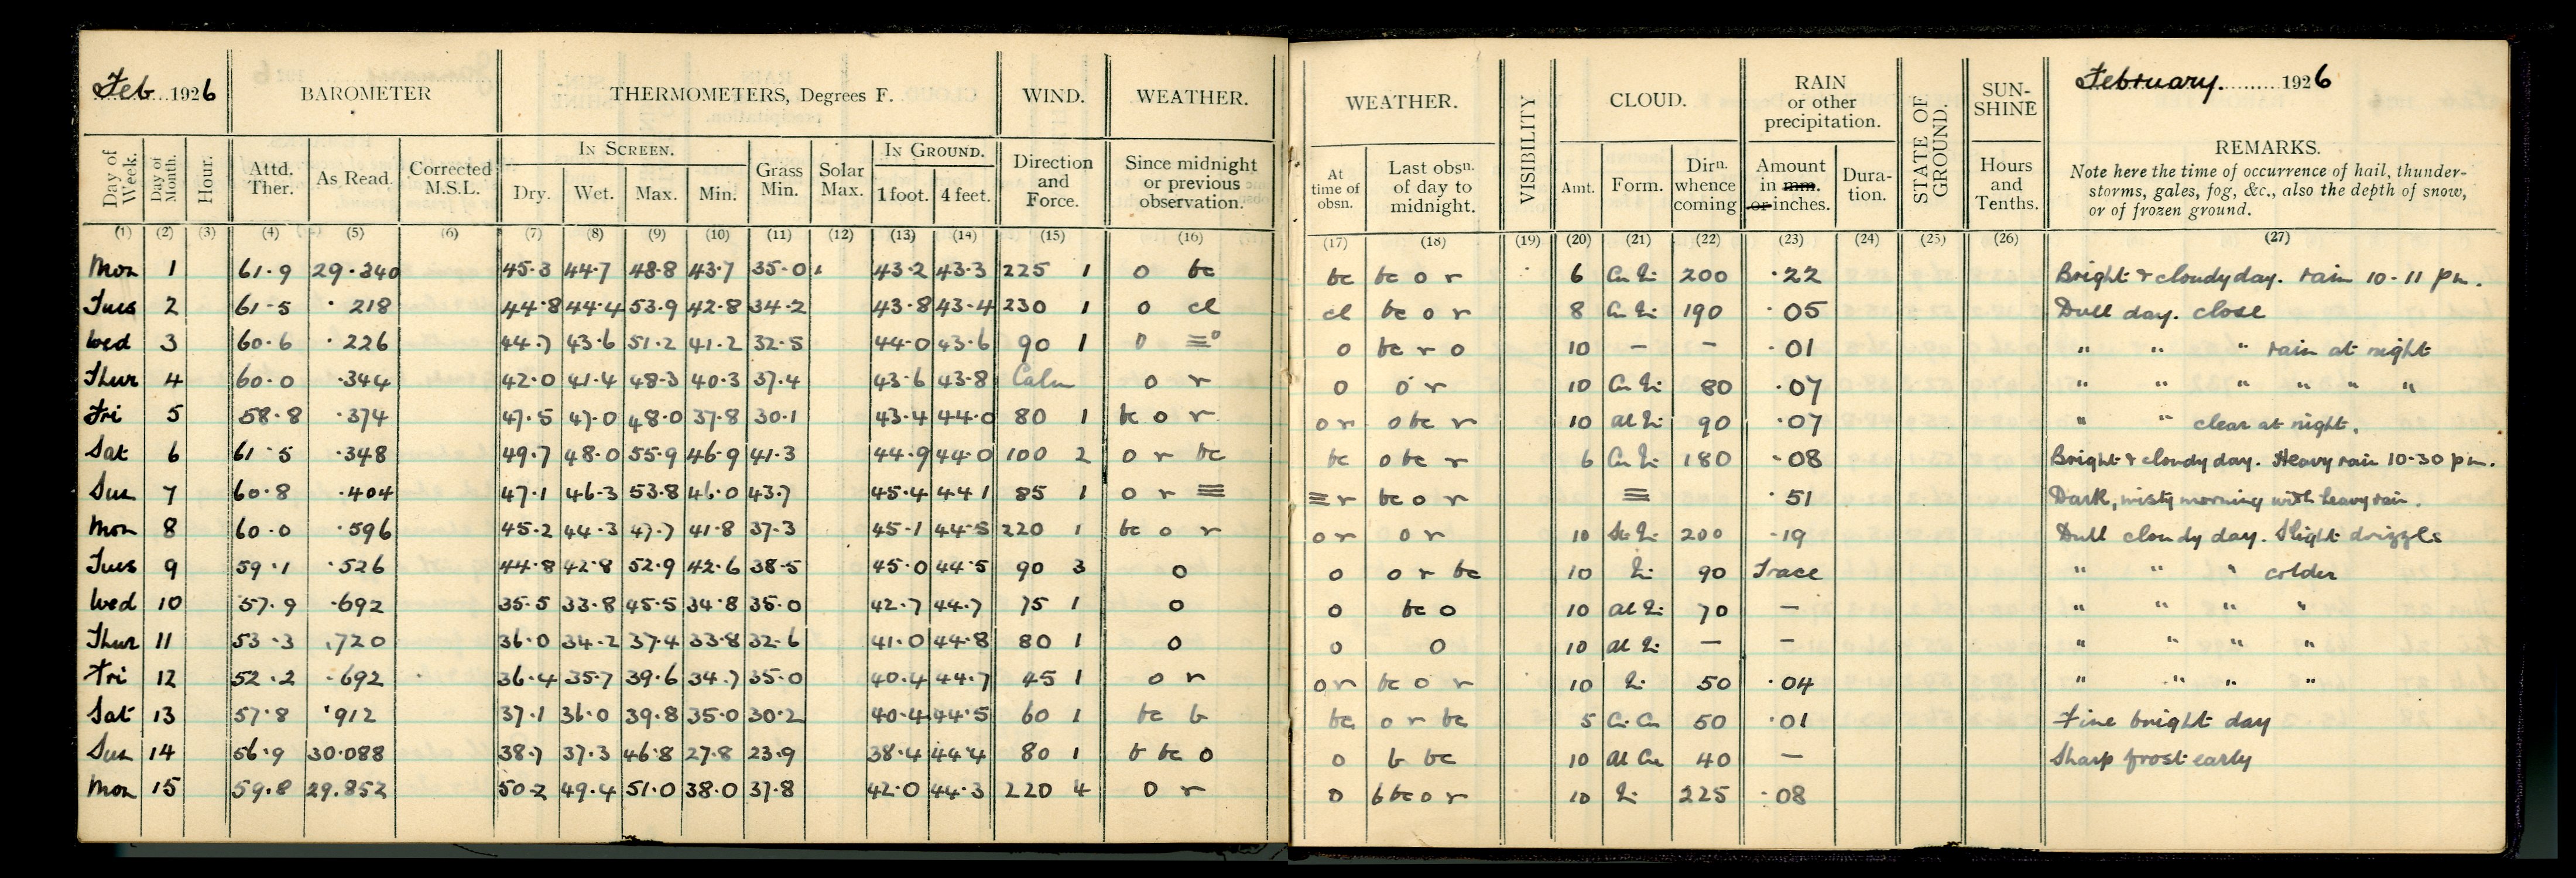 Feb 1926 BAROMETER THERMOMETERS, Degrees F. WIND. WEATHER.
Day of Week. Day of Month. Hour. Attd. Ther. As Read. Corrected M.S.L. IN SCREEN. Dry. Wet. Max. Min. Grass Min. Solar Max. IN GROUND. 1 foot. 4 feet. Direction and Force. Since midnight or previous observation.
(1) (2) (3) (4) (5) (6) (7) (8) (9) (10) (11) (12) (13) (14) (15) (16)
Mon 1 61.9 29.340 45.3 44.7 48.8 43.7 35.0 43.2 43.3 225 1 o bc
Tues 2 61.5 . 218 44.8 44.4 53.9 42.8 34.2 43.8 43.4 230 1 o cl
Wed 3 60.6 . 226 44.7 43.6 51.2 41.2 32.5 44.0 43.6 90 1 o ≡°
Thur 4 60.0 .344 42.0 41.4 48.3 40.3 37.4 43.6 43.8 Calm o r
Fri 5 58.8 .374 47.5 47.0 48.0 37.8 30.1 43.4 44.0 80 1 bc o r
Sat 6 61.5 .348 49.7 48.0 55.9 46.9 41.3 44.9 44.0 100 2 o r bc
Sun 7 60.8 .404 47.1 46.3 53.8 46.0 43.7 45.4 44.1 85 1 o r ≡
Mon 8 60.0 .596 45.2 44.3 47.7 41.8 37.3 45.1 44.5 220 1 bc o r
Tues 9 59.1 .526 44.8 42.8 52.9 42.6 38.5 45.0 44.5 90 3 o
Wed 10 57.9 .692 35.5 33.8 45.5 34.8 35.0 42.7 44.7 75 1 o
Thur 11 53.3 .720 36.0 34.2 37.4 33.8 32.6 41.0 44.8 80 1 o
Fri 12 52.2 .692 36.4 35.7 39.6 34.7 35.0 40.4 44.7 45 1 o r
Sat 13 57.8 .912 37.1 36.0 39.8 35.0 30.2 40.4 44.5 60 1 bc b
Sun 14 56.9 30.088 38.7 37.3 46.8 27.8 23.9 38.4 44.4 80 1 b bc o
Mon 15 59.8 29.852 50.2 49.4 51.0 38.0 37.8 42.0 44.3 220 4 o r
WEATHER. VISIBILITY CLOUD. RAIN or other precipitation. STATE OF GROUND. SUN-SHINE February 1926
At time of obsn. Last obsn. of day to midnight. Amt. Form. Dirn. whence coming Amount in mm. or inches. Dura-tion. Hours and Tenths. REMARKS.
Note here the time of occurrence of hail, thunder-
storms, gales, fog, &c., also the depth of snow,
or of frozen ground.
(17) (18) (19) (20) (21) (22) (23) (24) (25) (26) (27)
bc bc o r 6 Cu Ni 200 .22 Bright & cloudy day. rain 10-11 pm.
cl bc o r 8 Cu Ni 190 .05 Dull day. close
o bc r o 10 – – .01 " " " rain at night
o o r 10 Cu Ni 80 .07 " " " " " "
o r o bc r 10 Al Ni 90 .07 " " clear at night.
bc o bc r 6 Cu Ni 180 .08 Bright & cloudy day. Heavy rain 10-30 pm.
≡ r bc o r ≡ .51 Dark, misty morning with heavy rain.
o r o r 10 St Ni 200 .19 Dull cloudy day. Slight drizzle
o o r bc 10 Ni 90 Trace " " " colder
o bc o 10 Al Ni 70 – " " " "
o o 10 Al Ni – – " " " "
o r bc o r 10 Ni 50 .04 " " " "
bc o r bc 5 Ci Cu 50 .01 Fine bright day
o b bc 10 Al Cu 40 – Sharp frost early
o b bc o r 10 Ni 225 .08